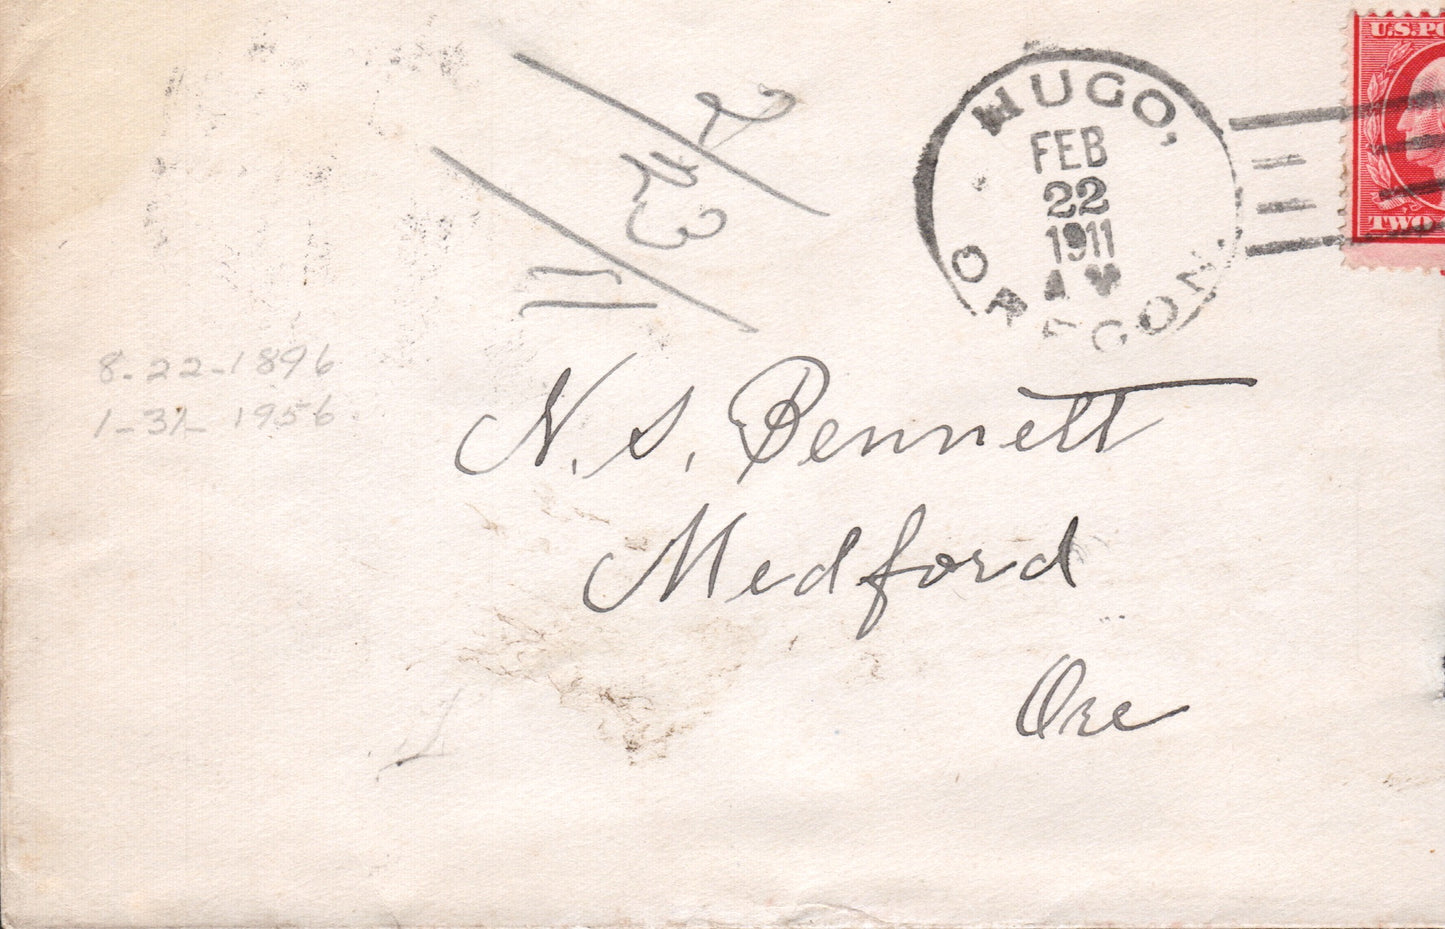 U.S.PO
HUGO,
FEB
22
1911
OREGON.
TWO
2/23/11
8-22-1896
1-31-1956
N. S. Bennett
Medford
Ore